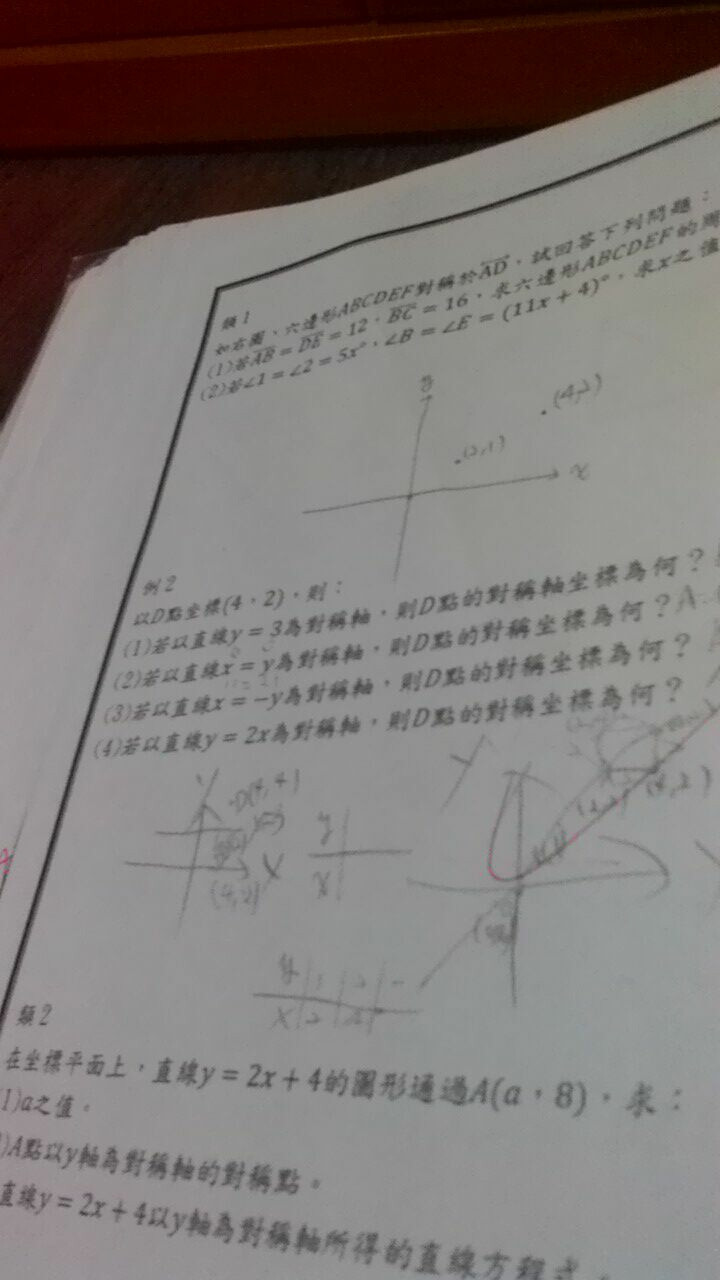 類1
如右圖,六邊形ABCDEF對稱於AD,試回答下列問題:
(1)若AB=DE=12,BC=16,求六邊形ABCDEF的周
(2)若∠1=∠2=5x°,∠B=∠E=(11x+4)°,求x之值
y
(4,2)
(2,1)
x
例2
以D點坐標(4,2),則:
(1)若以直線y=3為對稱軸,則D點的對稱軸坐標為何?
(2)若以直線x=y為對稱軸,則D點的對稱坐標為何?A
(3)若以直線x=-y為對稱軸,則D點的對稱坐標為何?
(4)若以直線y=2x為對稱軸,則D點的對稱坐標為何?
y
D(4,4)
X
(4,2)
y
x
y
(4,2)
y 1 2
x 2
類2
在坐標平面上,直線y=2x+4的圖形通過A(a,8),求:
1)a之值。
)A點以y軸為對稱軸的對稱點。
直線y=2x+4以y軸為對稱軸所得的直線方程式。